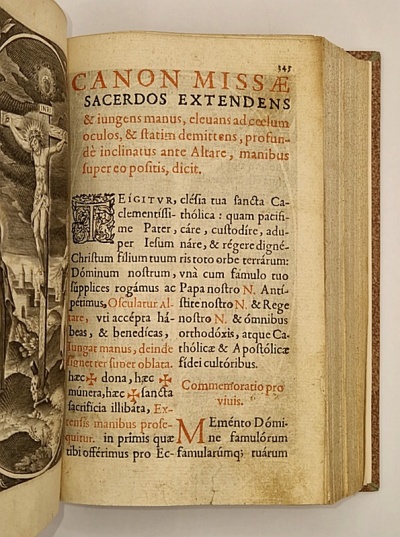 INRI
343
CANON MISSÆ
SACERDOS EXTENDENS
& iungens manus, eleuans ad cœlum
oculos, & statim demittens, profun-
dè inclinatus ante Altare, manibus
super eo positis, dicit.
TEÍGITVR,
clementissi-
me Pater,
per Iesum
Christum filium tuum
Dóminum nostrum,
súpplices rogámus ac
pétimus, Osculatur Al-
tare, vti accépta há-
beas, & benedícas,
Iungat manus, deinde
signet ter super oblata.
hæc ✠ dona, hæc ✠
múnera, hæc ✠ sancta
sacrificia illibáta, Ex-
tensis manibus prose-
quitur. in primis quæ
tibi offérimus pro Ec-
clésia tua sancta Ca-
thólica: quam pacifi-
cáre, custodíre, adu-
náre, & régere digné-
ris toto orbe terrárum:
vnà cum fámulo tuo
Papa nostro N. Antí-
stite nostro N. & Rege
nostro N. & ómnibus
orthodóxis, atque Ca-
thólicæ & Apostólicæ
fidei cultóribus.
Commemoratio pro
viuis.
Meménto Dómi-
ne famulórum
famularúmq; tuárum